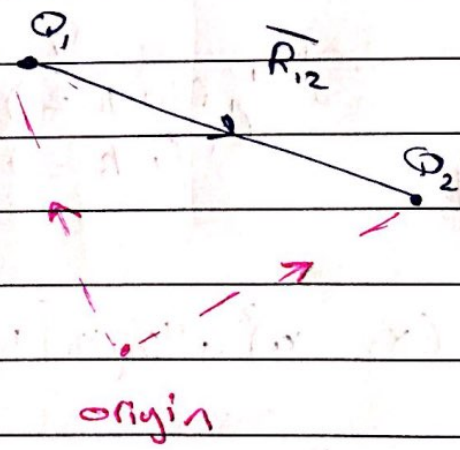 Q₁
R̅₁₂
Q₂
origin